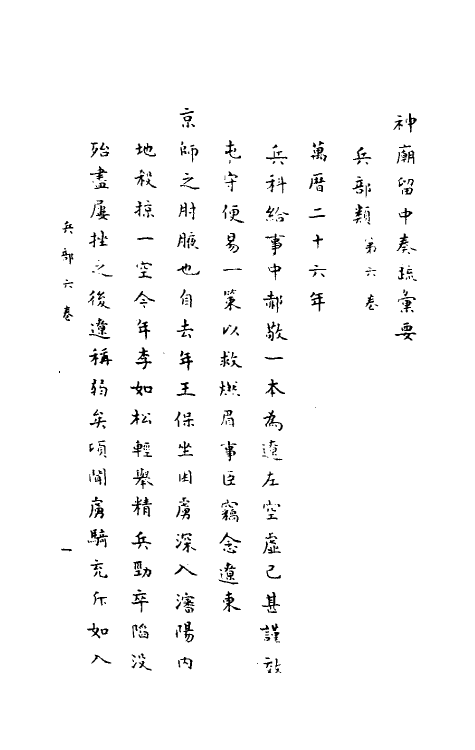 神廟留中奏疏彙要
兵部類第六卷
萬曆二十六年
兵科給事中郝敬一本為遼左空虛已甚謹效
屯守便易一策以救燃眉事臣竊念遼東
京師之肘腋也自去年王保坐困虜深入瀋陽內
地殺掠一空今年李如松輕舉精兵勁卒陷沒
殆盡屢挫之後遼稱弱矣頃聞虜騎充斥如入
兵部六卷
一